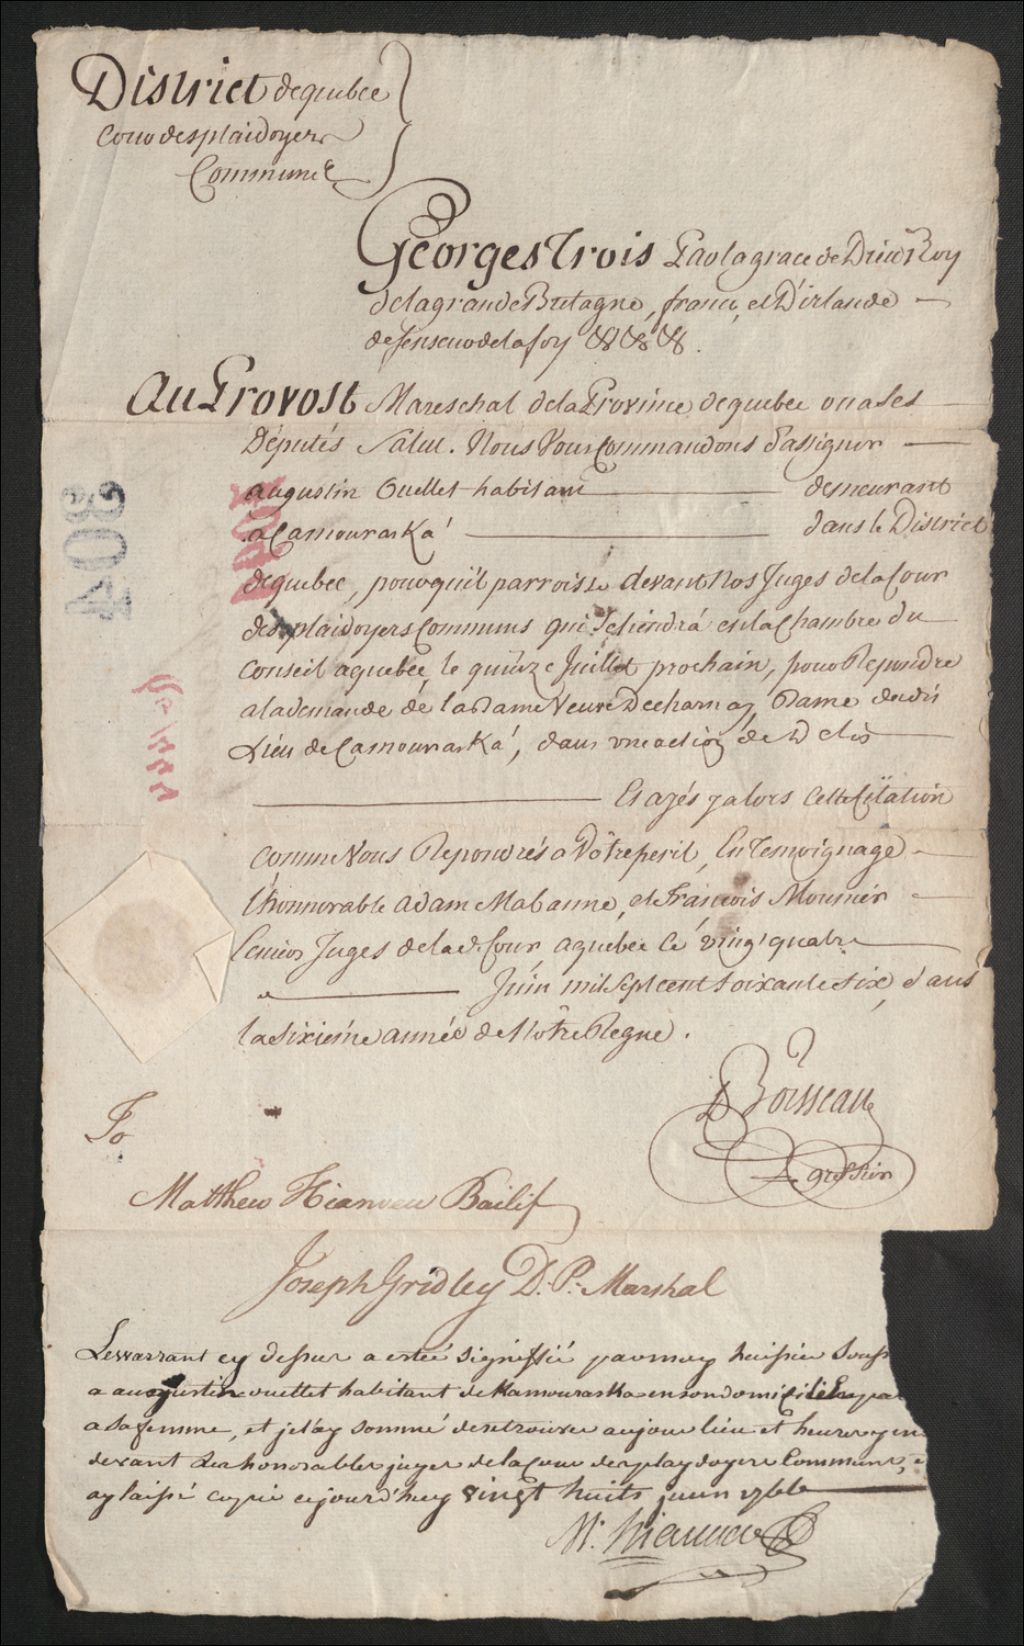 District de quebec
Cour des plaidoyers
Communs
Georges Trois Par la grace de Dieu Roy
de la grande Bretagne, france, et D'irlande
defenseur de la foy &c &c &c.
Au Provost Mareschal de la Province de quebec ou a ses
Députés Salut. Nous Vous Commandons d'assigner
augustin Ouellet habitant demeurant
a Camouraska dans le District
de quebec, pour qu'il parroisse devant Nos Juges de la Cour
des plaidoyers Communs qui se tiendrá en la Chambre du
Conseil a quebec, le quinze Juillet prochain, pour Repondre
a la demande de la Dame Veuve Decharnay Dame du dit
Lieu de Camouraská, dans une action de Debt
Et ayés y alors cette Citation
comme Vous Repondrés a Vôtre peril, En Temoignage
l'honnorable adam Mabanne, et François Mounier
Ecuiers Juges de la de Cour, a quebec ce vingt quatre
Juin mil Sept cent Soixante six, dans
la sixiéme année de Nôtre Regne.
D Boisseau
greffier
To
Matthew Hianveu Bailif
Joseph Gridley D. P. Marshal
Le warrant cy dessus a esteé signiffié par moy huissier Souss
a augustin ouellet habitant de Kamouraska en son domicile
a sa femme, et je l'ay sommé de se trouver au jour lieu et heure y en
devant Les honorables juges de la Cour des playdoyers Communs,
ay laissé copie ce jourd'huy vingt huits juin 1766
M. Hianveu
408